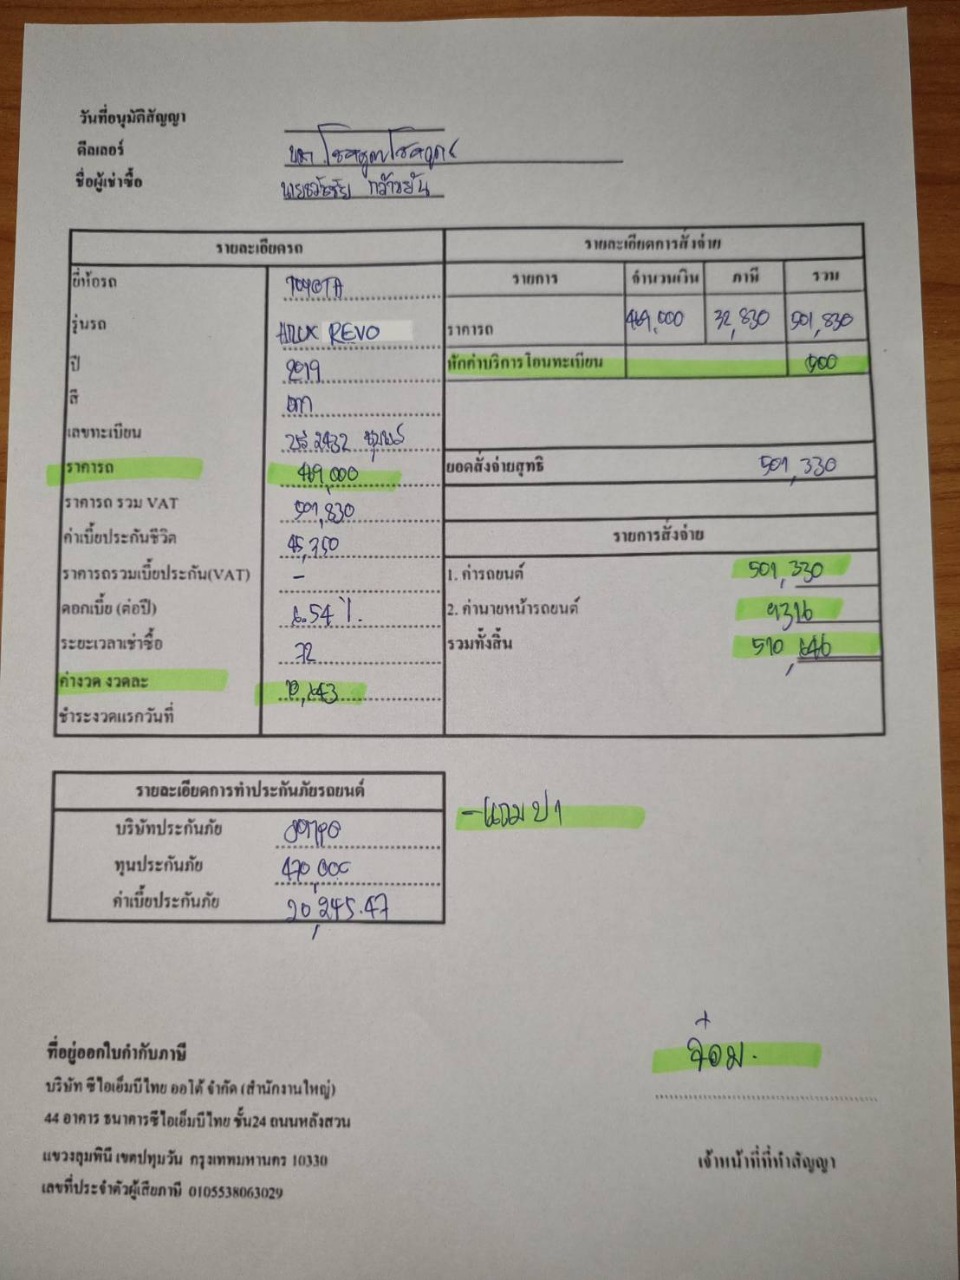 วันที่อนุมัติสัญญา
ดีลเลอร์
ชื่อผู้เช่าซื้อ
รายละเอียดรถ
รายละเอียดการสั่งจ่าย
ยี่ห้อรถ TOYOTA
รายการ จำนวนเงิน ภาษี รวม
รุ่นรถ HILUX REVO
ราคารถ 469,000 32,830 501,830
ปี 2019
หักค่าบริการโอนทะเบียน 500
สี เทา
เลขทะเบียน 2432
ราคารถ 469,000
ยอดสั่งจ่ายสุทธิ 501,330
ราคารถ รวม VAT 501,830
ค่าเบี้ยประกันชีวิต 45,350
รายการสั่งจ่าย
ราคารถรวมเบี้ยประกัน(VAT) -
1. ค่ารถยนต์ 501,330
ดอกเบี้ย (ต่อปี) 6.54 %.
2. ค่านายหน้ารถยนต์ 9316
ระยะเวลาเช่าซื้อ 72
รวมทั้งสิ้น 510,646
ค่างวด งวดละ 10,643
ชำระงวดแรกวันที่
รายละเอียดการทำประกันภัยรถยนต์
- แถม ป 1
บริษัทประกันภัย
ทุนประกันภัย 470,000
ค่าเบี้ยประกันภัย 20,245.47
ที่อยู่ออกใบกำกับภาษี
บริษัท ซีไอเอ็มบีไทย ออโต้ จำกัด (สำนักงานใหญ่)
44 อาคาร ธนาคารซีไอเอ็มบีไทย ชั้น24 ถนนหลังสวน
แขวงลุมพินี เขตปทุมวัน กรุงเทพมหานคร 10330
เลขที่ประจำตัวผู้เสียภาษี 0105538063029
จ๋อม.
เจ้าหน้าที่ที่ทำสัญญา